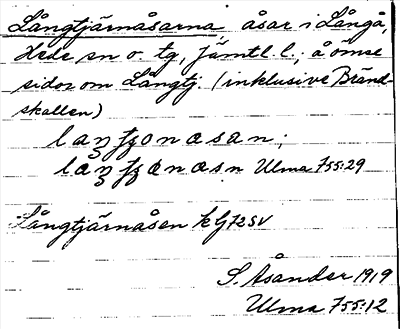 Långtjärnåsarna, åsar i Långå,
Hede sn o. tg, Jämtl l.; å ömse
sidor om Långtj. (inklusive Bränd-
skallen)
Ulma 755:29
Långtjärnåsen k G 72 SV
S. Åsander 1919
Ulma 755:12